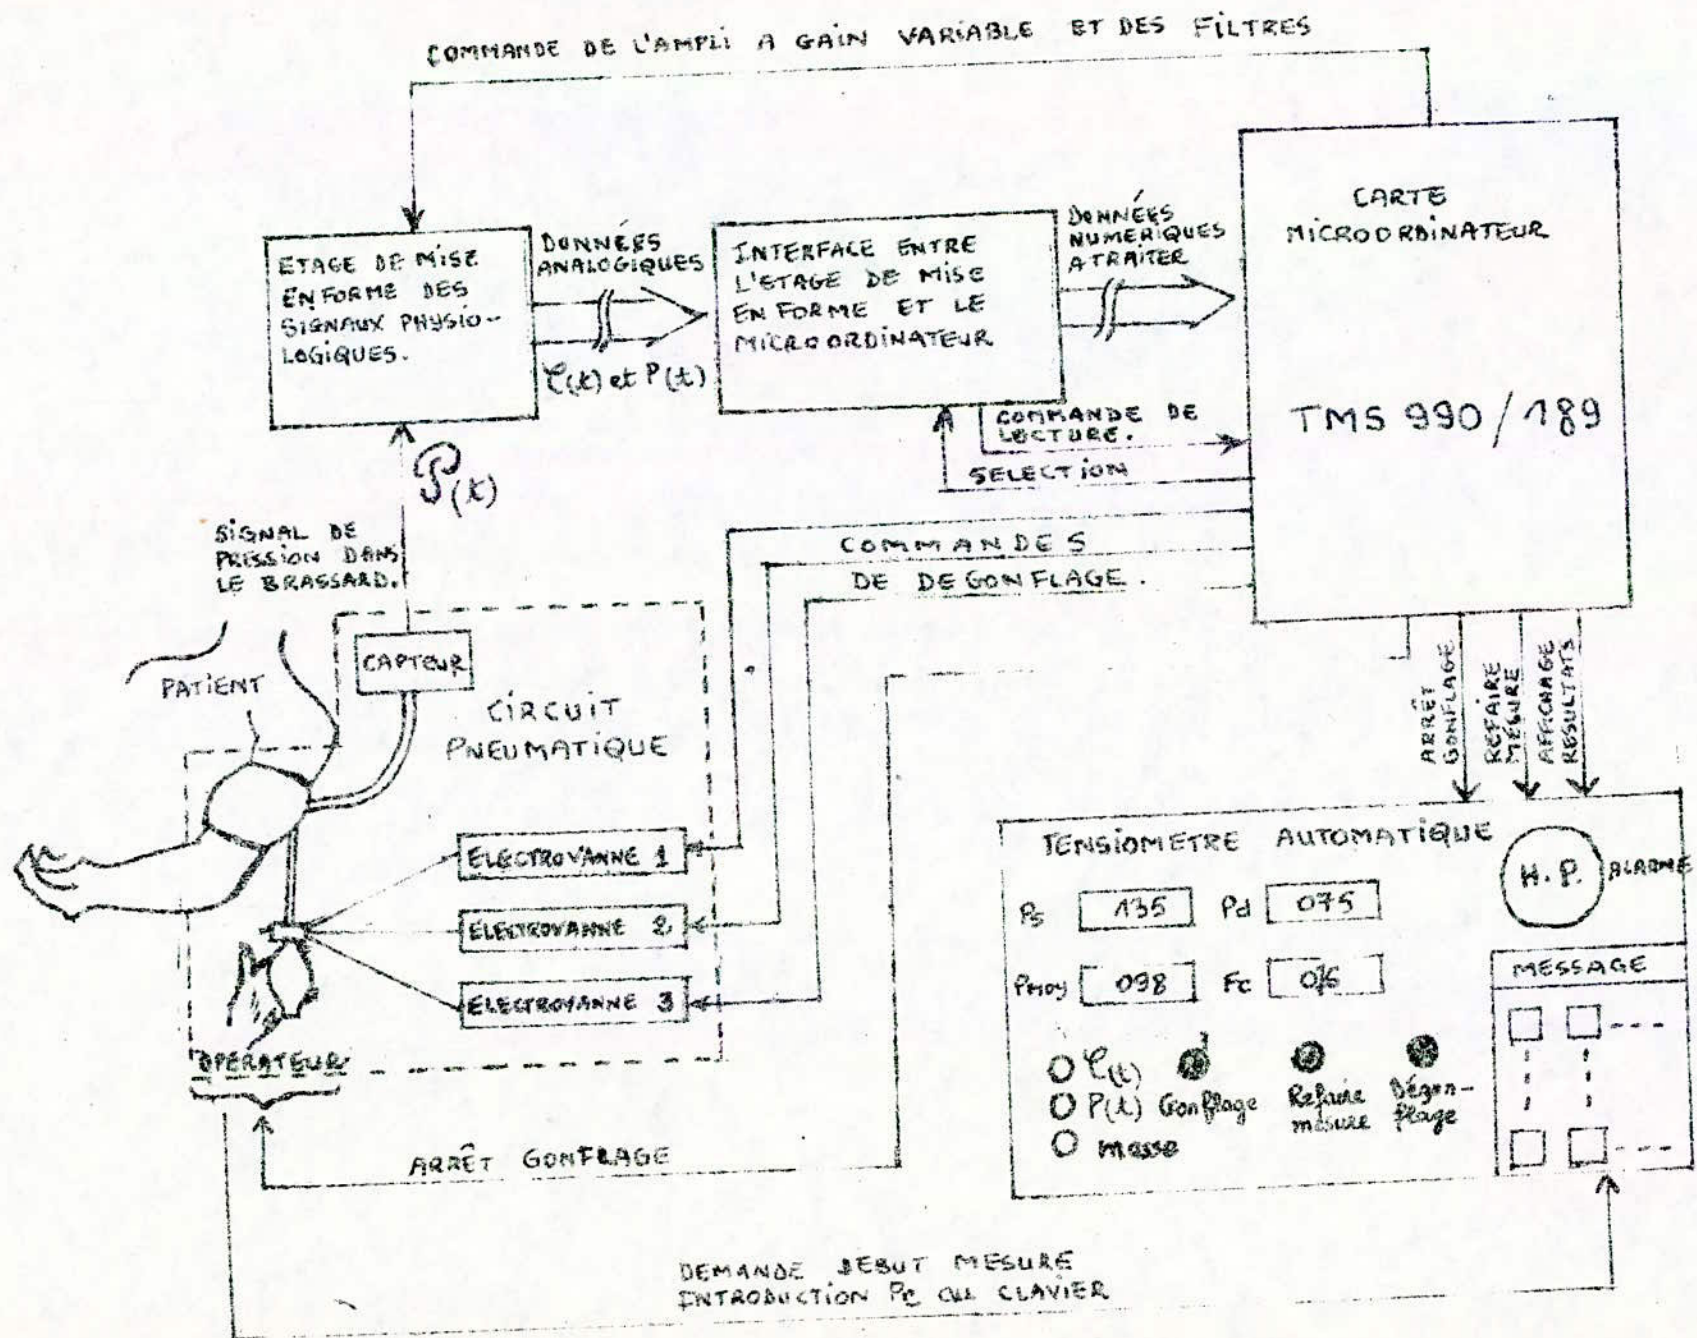 COMMANDE DE L'AMPLI A GAIN VARIABLE ET DES FILTRES
CARTE
MICROORDINATEUR
TMS 990/189
ETAGE DE MISE
EN FORME DES
SIGNAUX PHYSIO-
LOGIQUES.
DONNÉES
ANALOGIQUES
et P(t)
INTERFACE ENTRE
L'ETAGE DE MISE
EN FORME ET LE
MICROORDINATEUR
DONNÉES
NUMERIQUES
A TRAITER
COMMANDE DE
LECTURE.
SELECTION
P(t)
SIGNAL DE
PRESSION DANS
LE BRASSARD.
COMMANDES
DE DEGONFLAGE.
CAPTEUR
PATIENT
CIRCUIT
PNEUMATIQUE
ELECTROVANNE 1
ELECTROVANNE 2
ELECTROVANNE 3
OPERATEUR
ARRÊT GONFLAGE
ARRÊT
GONFLAGE
REFAIRE
MESURE
AFFICHAGE
RESULTATS
TENSIOMETRE AUTOMATIQUE
H.P. ALARME
Ps 135 Pd 075
Pmoy 098 Fc
MESSAGE
P(t)
masse
Gonflage
Refaire
mesure
Dégon-
flage
DEMANDE DEBUT MESURE
INTRODUCTION Pc au CLAVIER